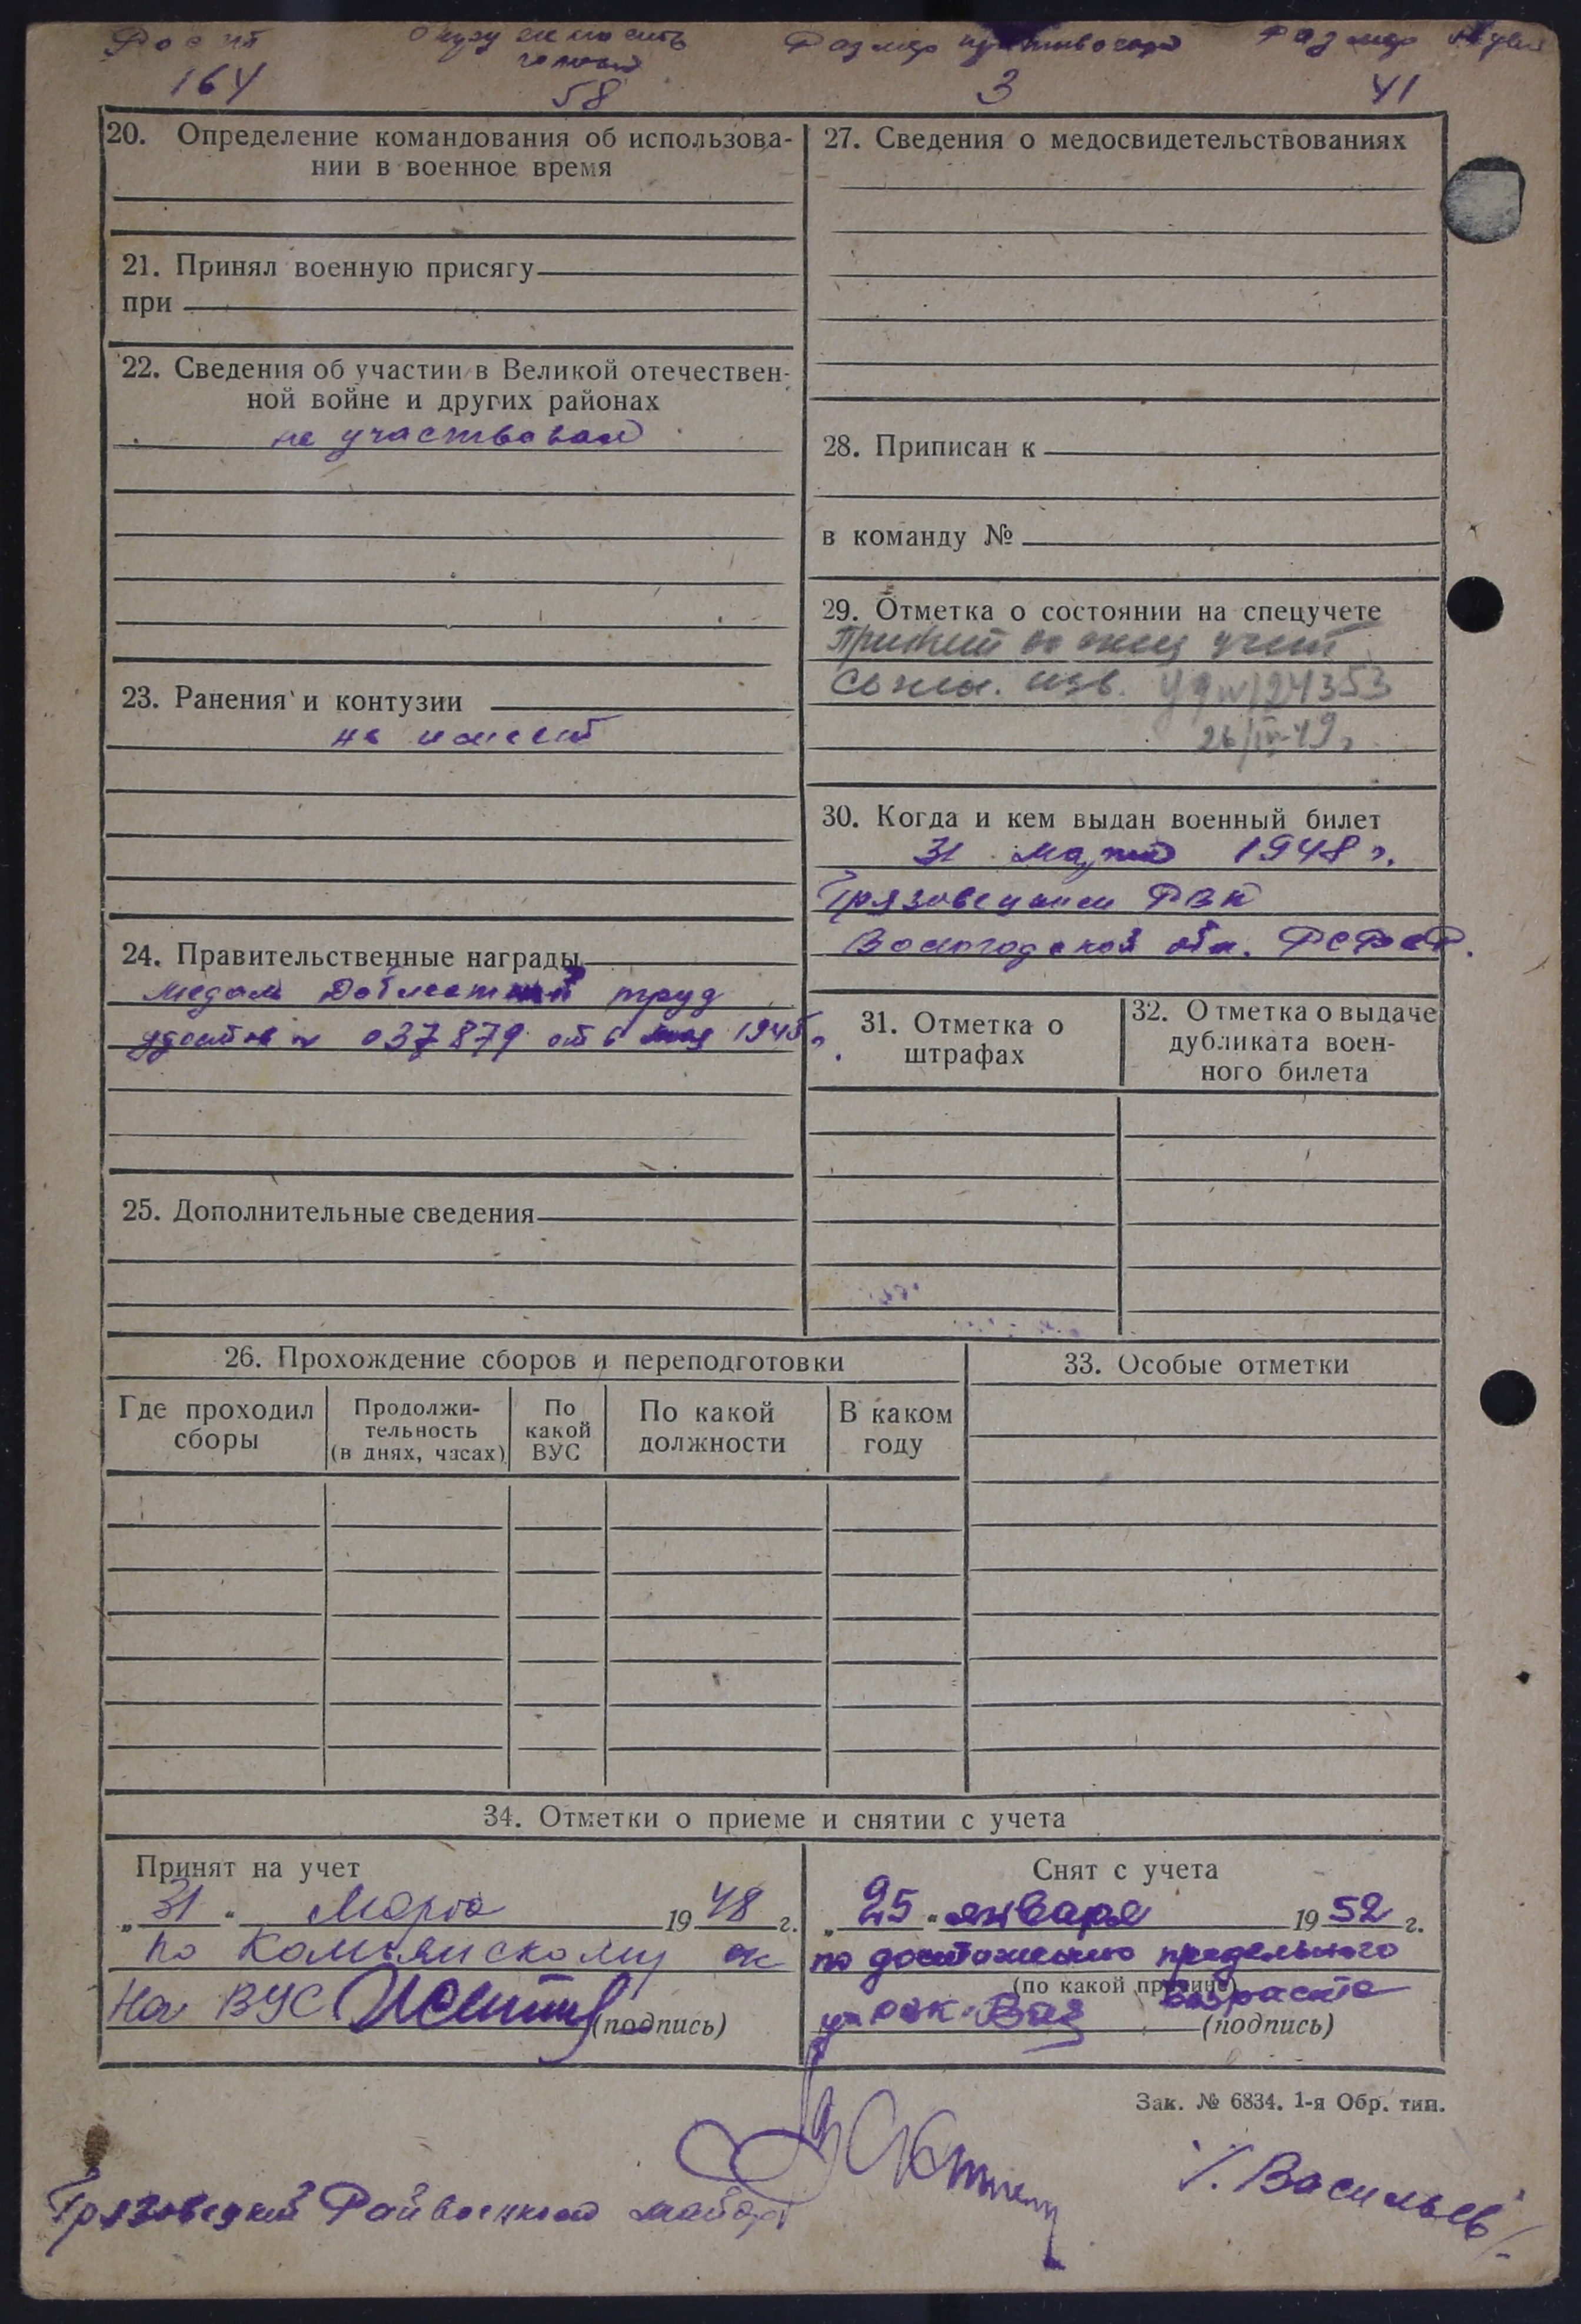 Рост Окружность Размер противогаза Размер обуви
головы
164 58 3 41
20. Определение командования об использова-
нии в военное время
21. Принял военную присягу
при
22. Сведения об участии в Великой отечествен-
ной войне и других районах
не участвовал
23. Ранения и контузии
не имеет
24. Правительственные награды
медаль Доблестный труд
удостов N 037879 от 6 мая 1945 г.
25. Дополнительные сведения
27. Сведения о медосвидетельствованиях
28. Приписан к
в команду №
29. Отметка о состоянии на спецучете
Принят на спец учет
24353
26/IV-49 г.
30. Когда и кем выдан военный билет
31 марта 1948 г.
Грязовецким РВК
Вологодской обл. РСФСР.
31. Отметка о
штрафах
32. Отметка о выдаче
дубликата воен-
ного билета
26. Прохождение сборов и переподготовки
Где проходил
сборы
Продолжи-
тельность
(в днях, часах)
По
какой
ВУС
По какой
должности
В каком
году
33. Особые отметки
34. Отметки о приеме и снятии с учета
Принят на учет
„31“ Марта 1948 г.
по Комьянскому
На ВУС
(подпись)
Снят с учета
„25“ января 1952 г.
по достижению предельного
(по какой причине)
возраста
(подпись)
Зак. № 6834. 1-я Обр. тип.
Грязовецкий Райвоенком майор
Васильев/